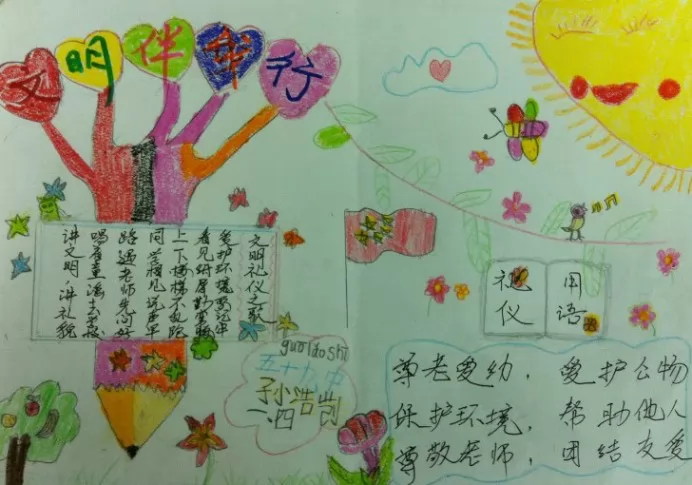 文明伴我行
文明礼仪之歌
爱护环境要记牢
看见纸屑勤弯腰
上下楼梯不乱跑
同学相见说声早
路遇老师先问好
唱着童谣去学校
讲文明，讲礼貌
guo lao shi
五十九中
孙浩
一、四
礼仪
用语
尊老爱幼，爱护公物
保护环境，帮助他人
尊敬老师，团结友爱